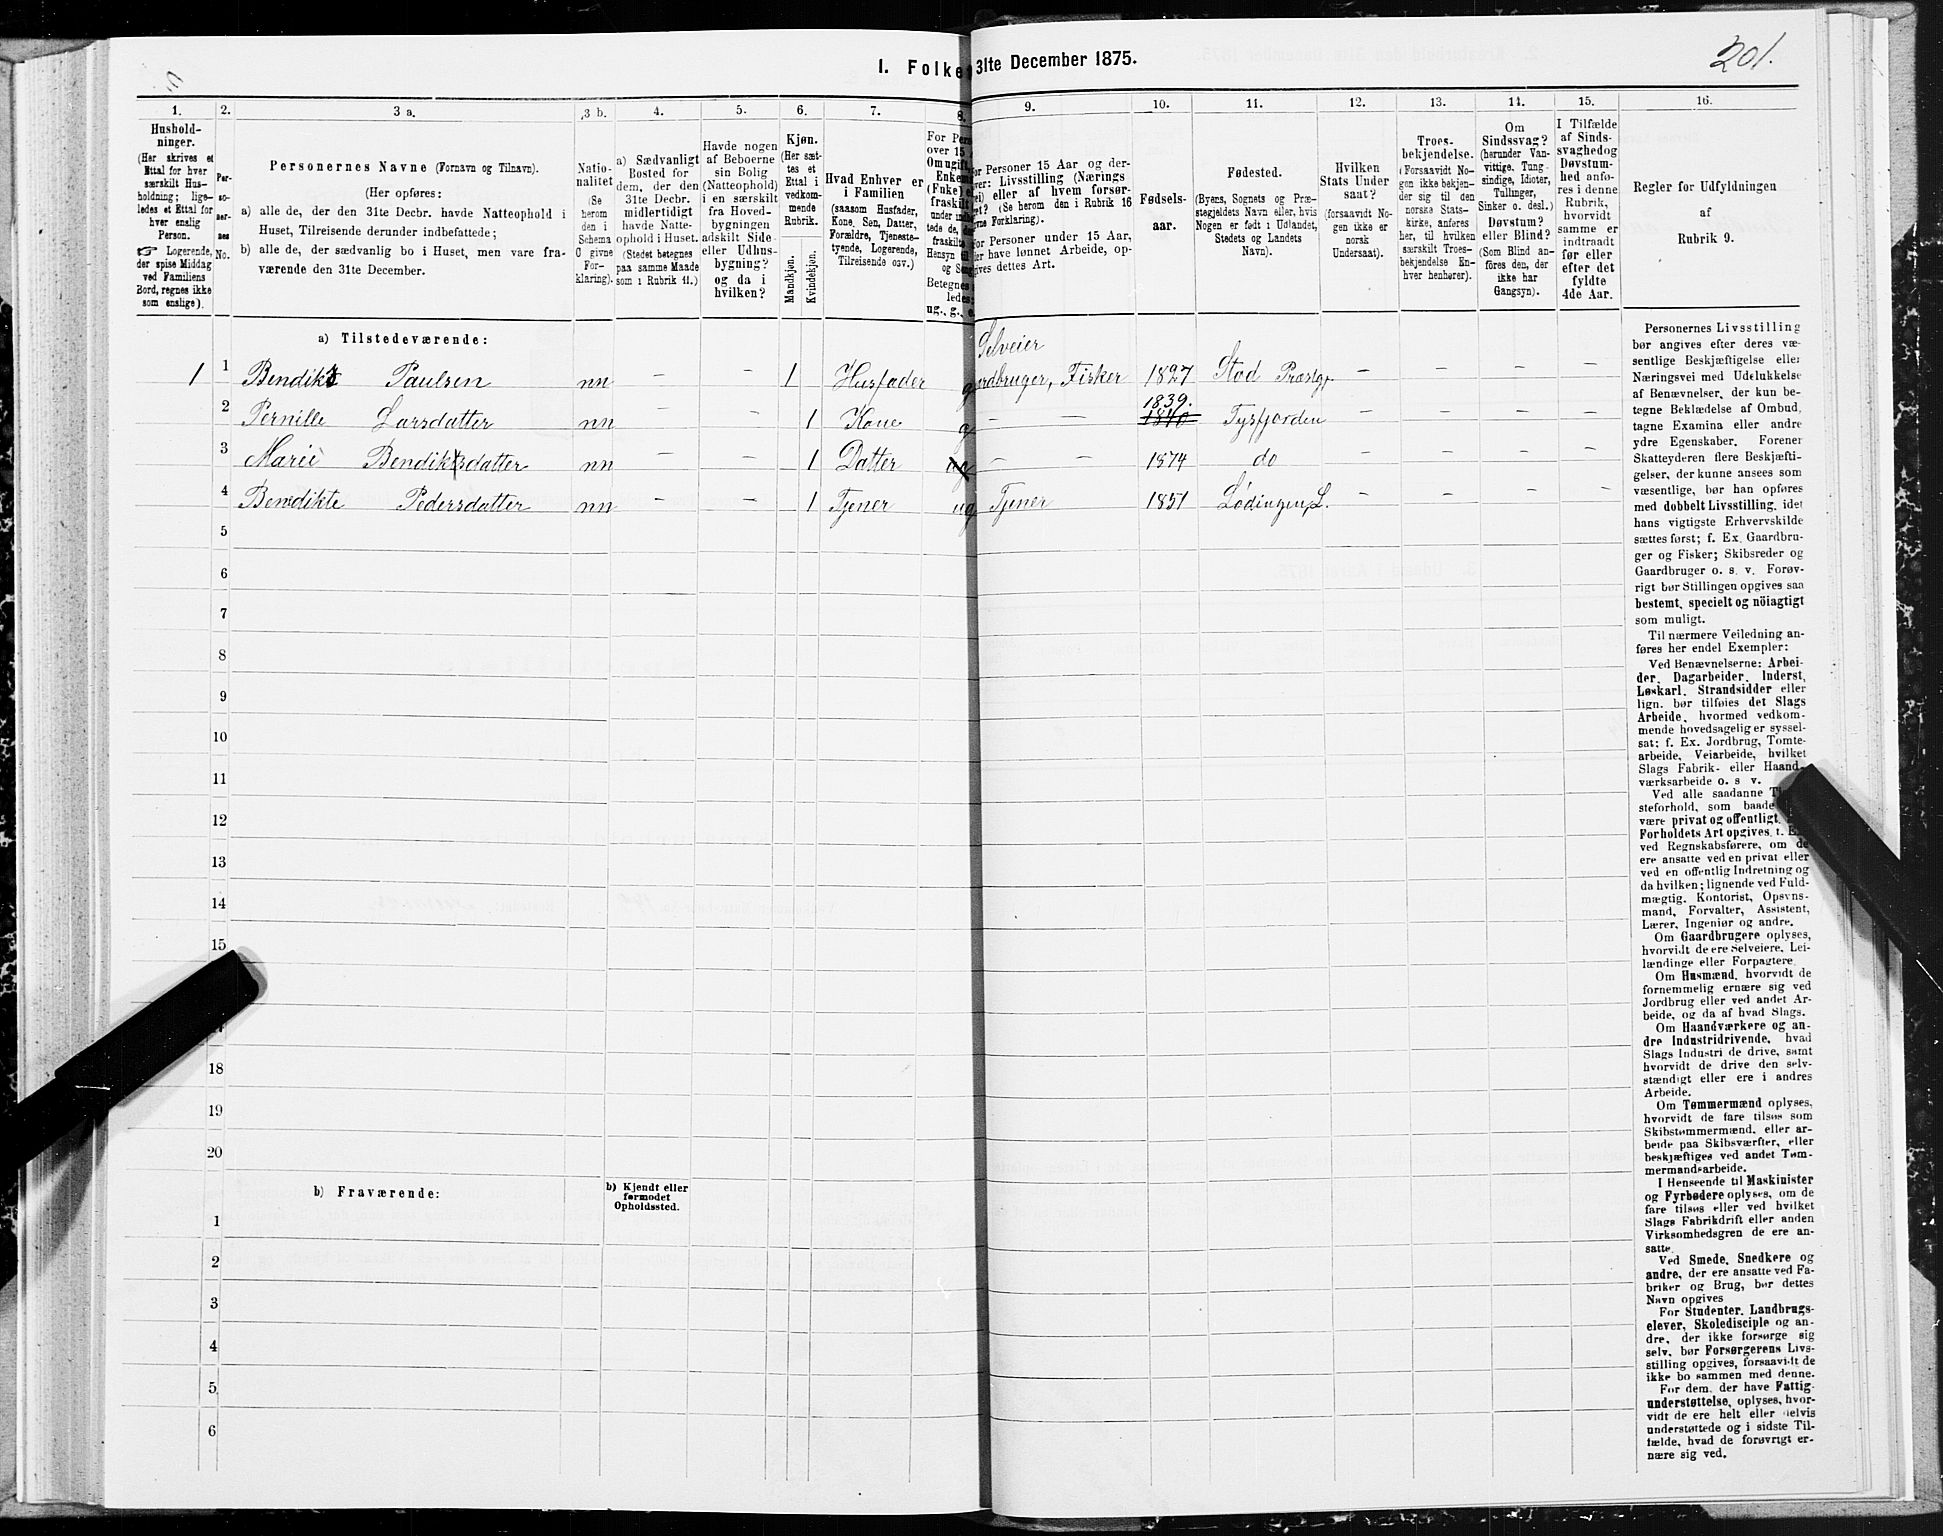 I. Folke 31te December 1875.
201.
1. 2. 3 a. 3 b. 4. 5. 6. 7. 8. 9. 10. 11. 12. 13. 14. 15. 16.
Hushold-
ninger.
(Her skrives et
Ettal for hver
særskilt Hus-
holdning; lige-
ledes et Ettal for
hver enslig
Person.
☞ Logerende,
der spise Middag
ved Familiens
Bord, regnes ikke
som enslige).
Per-
so-
ner-
nes
No.
Personernes Navne (Fornavn og Tilnavn).
(Her opføres:
a) alle de, der den 31te Decbr. havde Natteophold i
Huset, Tilreisende derunder indbefattede;
b) alle de, der sædvanlig bo i Huset, men vare fra-
værende den 31te December.
Natio-
nalitet
(Se
herom
den i
Schema
C givne
For-
klaring).
a) Sædvanligt
Bosted for
dem, der den
31te Decbr.
midlertidigt
havde Natte-
ophold i Huset.
(Stedet betegnes
paa samme Maade
som i Rubrik 11.)
Havde nogen
af Beboerne
sin Bolig
(Natteophold)
i en særskilt
fra Hoved-
bygningen
adskilt Side-
eller Udhus-
bygning?
og da i
hvilken?
Kjøn.
(Her sæt-
tes et
Ettal i
vedkom-
mende
Rubrik.
Mandkjøn.
Kvindekjøn.
Hvad Enhver er
i Familien
(saasom Husfader,
Kone, Søn, Datter,
Forældre, Tjeneste-
tyende, Logerende,
Tilreisende osv.)
For Pers
over 15
Omugift,
Enkem
(Enke)
fraskilt
under ind
tede de,
fraskilt
Hensyn til
og Seng
Betegnes
ledes:
ug., g., e.
or Personer 15 Aar og der-
ver: Livsstilling (Nærings
ei) eller af hvem forsør-
get? (Se herom den i Rubrik 16
vne Forklaring).
or Personer under 15 Aar,
er have lønnet Arbeide, op-
gives dettes Art.
Fødsels-
aar.
Fødested.
(Byens, Sognets og Præ-
stegjeldets Navn eller, hvis
Nogen er født i Udlandet,
Stedets og Landets
Navn).
Hvilken
Stats Under
saat?
(forsaavidt No-
gen ikke er
norsk
Undersaat).
Troes-
bekjendelse.
(Forsaavidt No-
gen ikke bekjen-
der sig til den
norske Stats-
kirke, anføres
her, til hvilken
særskilt Troes-
bekjendelse En-
hver henhører).
Om
Sindssvag?
(herunder Van-
vittige, Tung-
sindige, Idioter,
Tullinger,
Sinker o. desl.)
Døvstum?
eller Blind?
(Som Blind an-
føres den, der
ikke har
Gangsyn).
I Tilfælde
af Sinds-
svaghedog
Døvstum-
hed anfø-
res i denne
Rubrik,
hvorvidt
samme er
indtraadt
før eller
efter det
fyldte
4de Aar.
Regler for Udfyldningen
af
Rubrik 9.
a) Tilstedeværende:
Selveier
1 1 Bendikt Paulsen nn — — 1 Husfader g ordbruger, Fisker 1827 Stod Præstgj. — — — —
1839.
2 Pernille Larsdatter nn — — 1 Kone g — — 1840 Tysfjorden — — — —
3 Marie Bendiktsdatter nn — — 1 Datter ug — — 1874 do — — — —
4 Benedikte Pedersdatter nn — — 1 Tjener ug Tjener 1851 Lødingen, L. — — — —
5
6
7
8
9
10
11
12
13
14
15
18
19
20
b) Fraværende:
b) Kjendt eller
formodet
Opholdssted.
1
2
3
4
5
6
Personernes Livsstilling
bør angives efter deres væ-
sentlige Beskjæftigelse eller
Næringsvei med Udelukkelse
af Benævnelser, der kun be-
tegne Beklædelse af Ombud,
tagne Examina eller andre
ydre Egenskaber. Forener
Skatteyderen flere Beskjæfti-
gelser, der kunne ansees som
væsentlige, bør han opføres
med dobbelt Livsstilling, idet
hans vigtigste Erhvervskilde
sættes først; f. Ex. Gaardbru-
ger og Fisker; Skibsreder og
Gaardbruger o. s. v. Forøv-
rigt bør Stillingen opgives saa
bestemt, specielt og nöiagtigt
som muligt.
Til nærmere Veiledning an-
føres her endel Exempler:
Ved Benævnelserne: Arbei-
der, Dagarbeider, Inderst,
Løskarl, Strandsidder eller
lign. bør tilføies det Slags
Arbeide, hvormed vedkom-
mende hovedsagelig er syssel-
sat; f. Ex. Jordbrug, Tomte-
arbeide, Veiarbeide, hvilket
Slags Fabrik- eller Haand-
værksarbeide o. s. v.
Ved alle saadanne
steforhold, som baade
være privat og offentligt,
Forholdets Art opgives, f.
ved Regnskabsførere, om de
ere ansatte ved en privat eller
ved en offentlig Indretning og
da hvilken; lignende ved Fuld-
mægtig, Kontorist, Opsyns-
mand, Forvalter, Assistent,
Lærer, Ingeniør og andre.
Om Gaardbrugere oplyses,
hvorvidt de ere Selveiere, Lei-
lændinge eller Forpagtere.
Om Husmænd, hvorvidt de
fornemmelig ernære sig ved
Jordbrug eller ved andet Ar-
beide, og da af hvad Slags.
Om Haandværkere og an-
dre Industridrivende, hvad
Slags Industri de drive, samt
hvorvidt de drive den selv-
stændigt eller ere i andres
Arbeide.
Om Tømmermænd oplyses,
hvorvidt de fare tilsøs som
Skibstømmermænd, eller ar-
beide paa Skibsværfter, eller
beskjæftiges ved andet Tøm-
mermandsarbeide.
I Henseende til Maskinister
og Fyrbødere oplyses, om de
fare tilsøs eller ved hvilket
Slags Fabrikdrift eller anden
Virksomhedsgren de ere an-
satte.
Ved Smede, Snedkere og
andre, der ere ansatte ved Fa-
briker og Brug, bør dettes
Navn opgives
For Studenter, Landbrugs-
elever, Skoledisciple og an-
dre, der ikke forsørge sig
selv, bør Forsørgerens Livs-
stilling opgives, forsaavidt de
ikke bo sammen med denne.
For dem, der have Fattig-
understøttelse, oplyses, hvor-
vidt de ere helt eller delvis
understøttede og i sidste Til-
fælde, hvad de forøvrigt er-
nære sig ved.